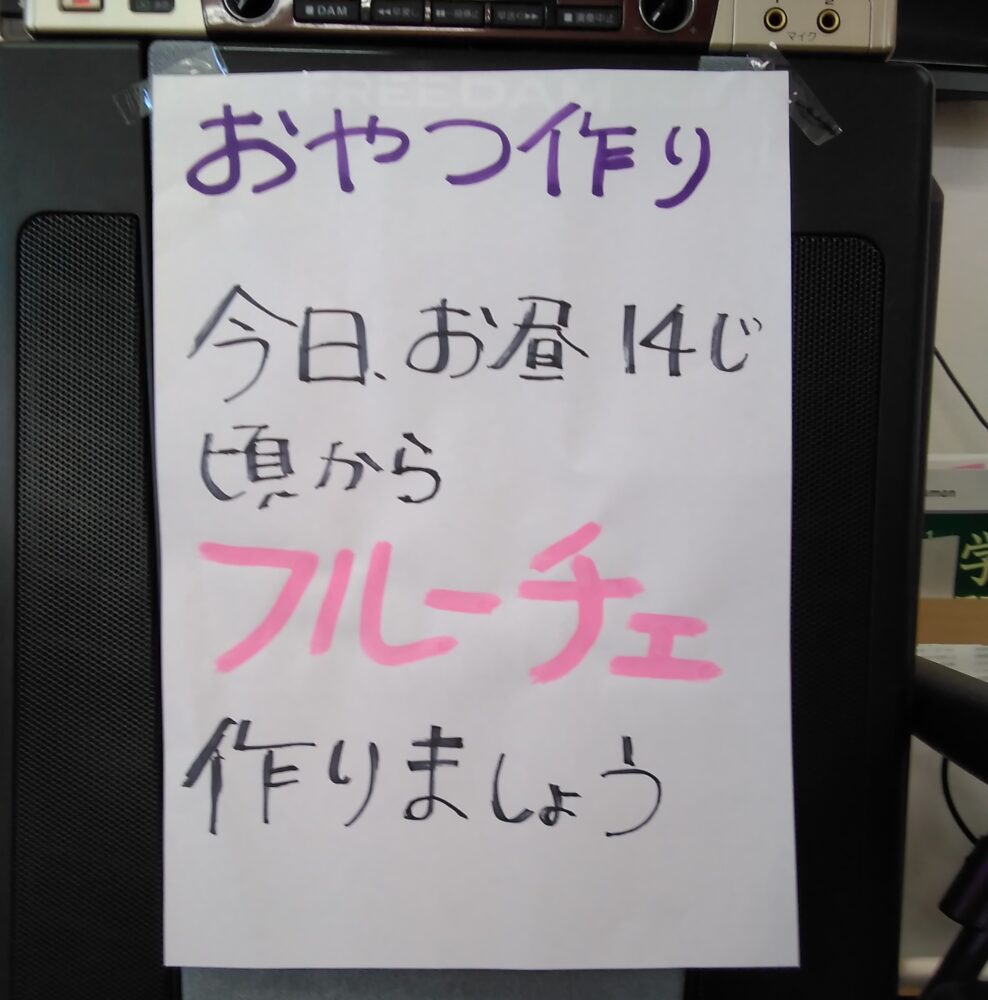 DAM
1 2
マイク
FREE DAM
おやつ作り
今日、お昼14じ
頃から
フルーチェ
作りましょう
学